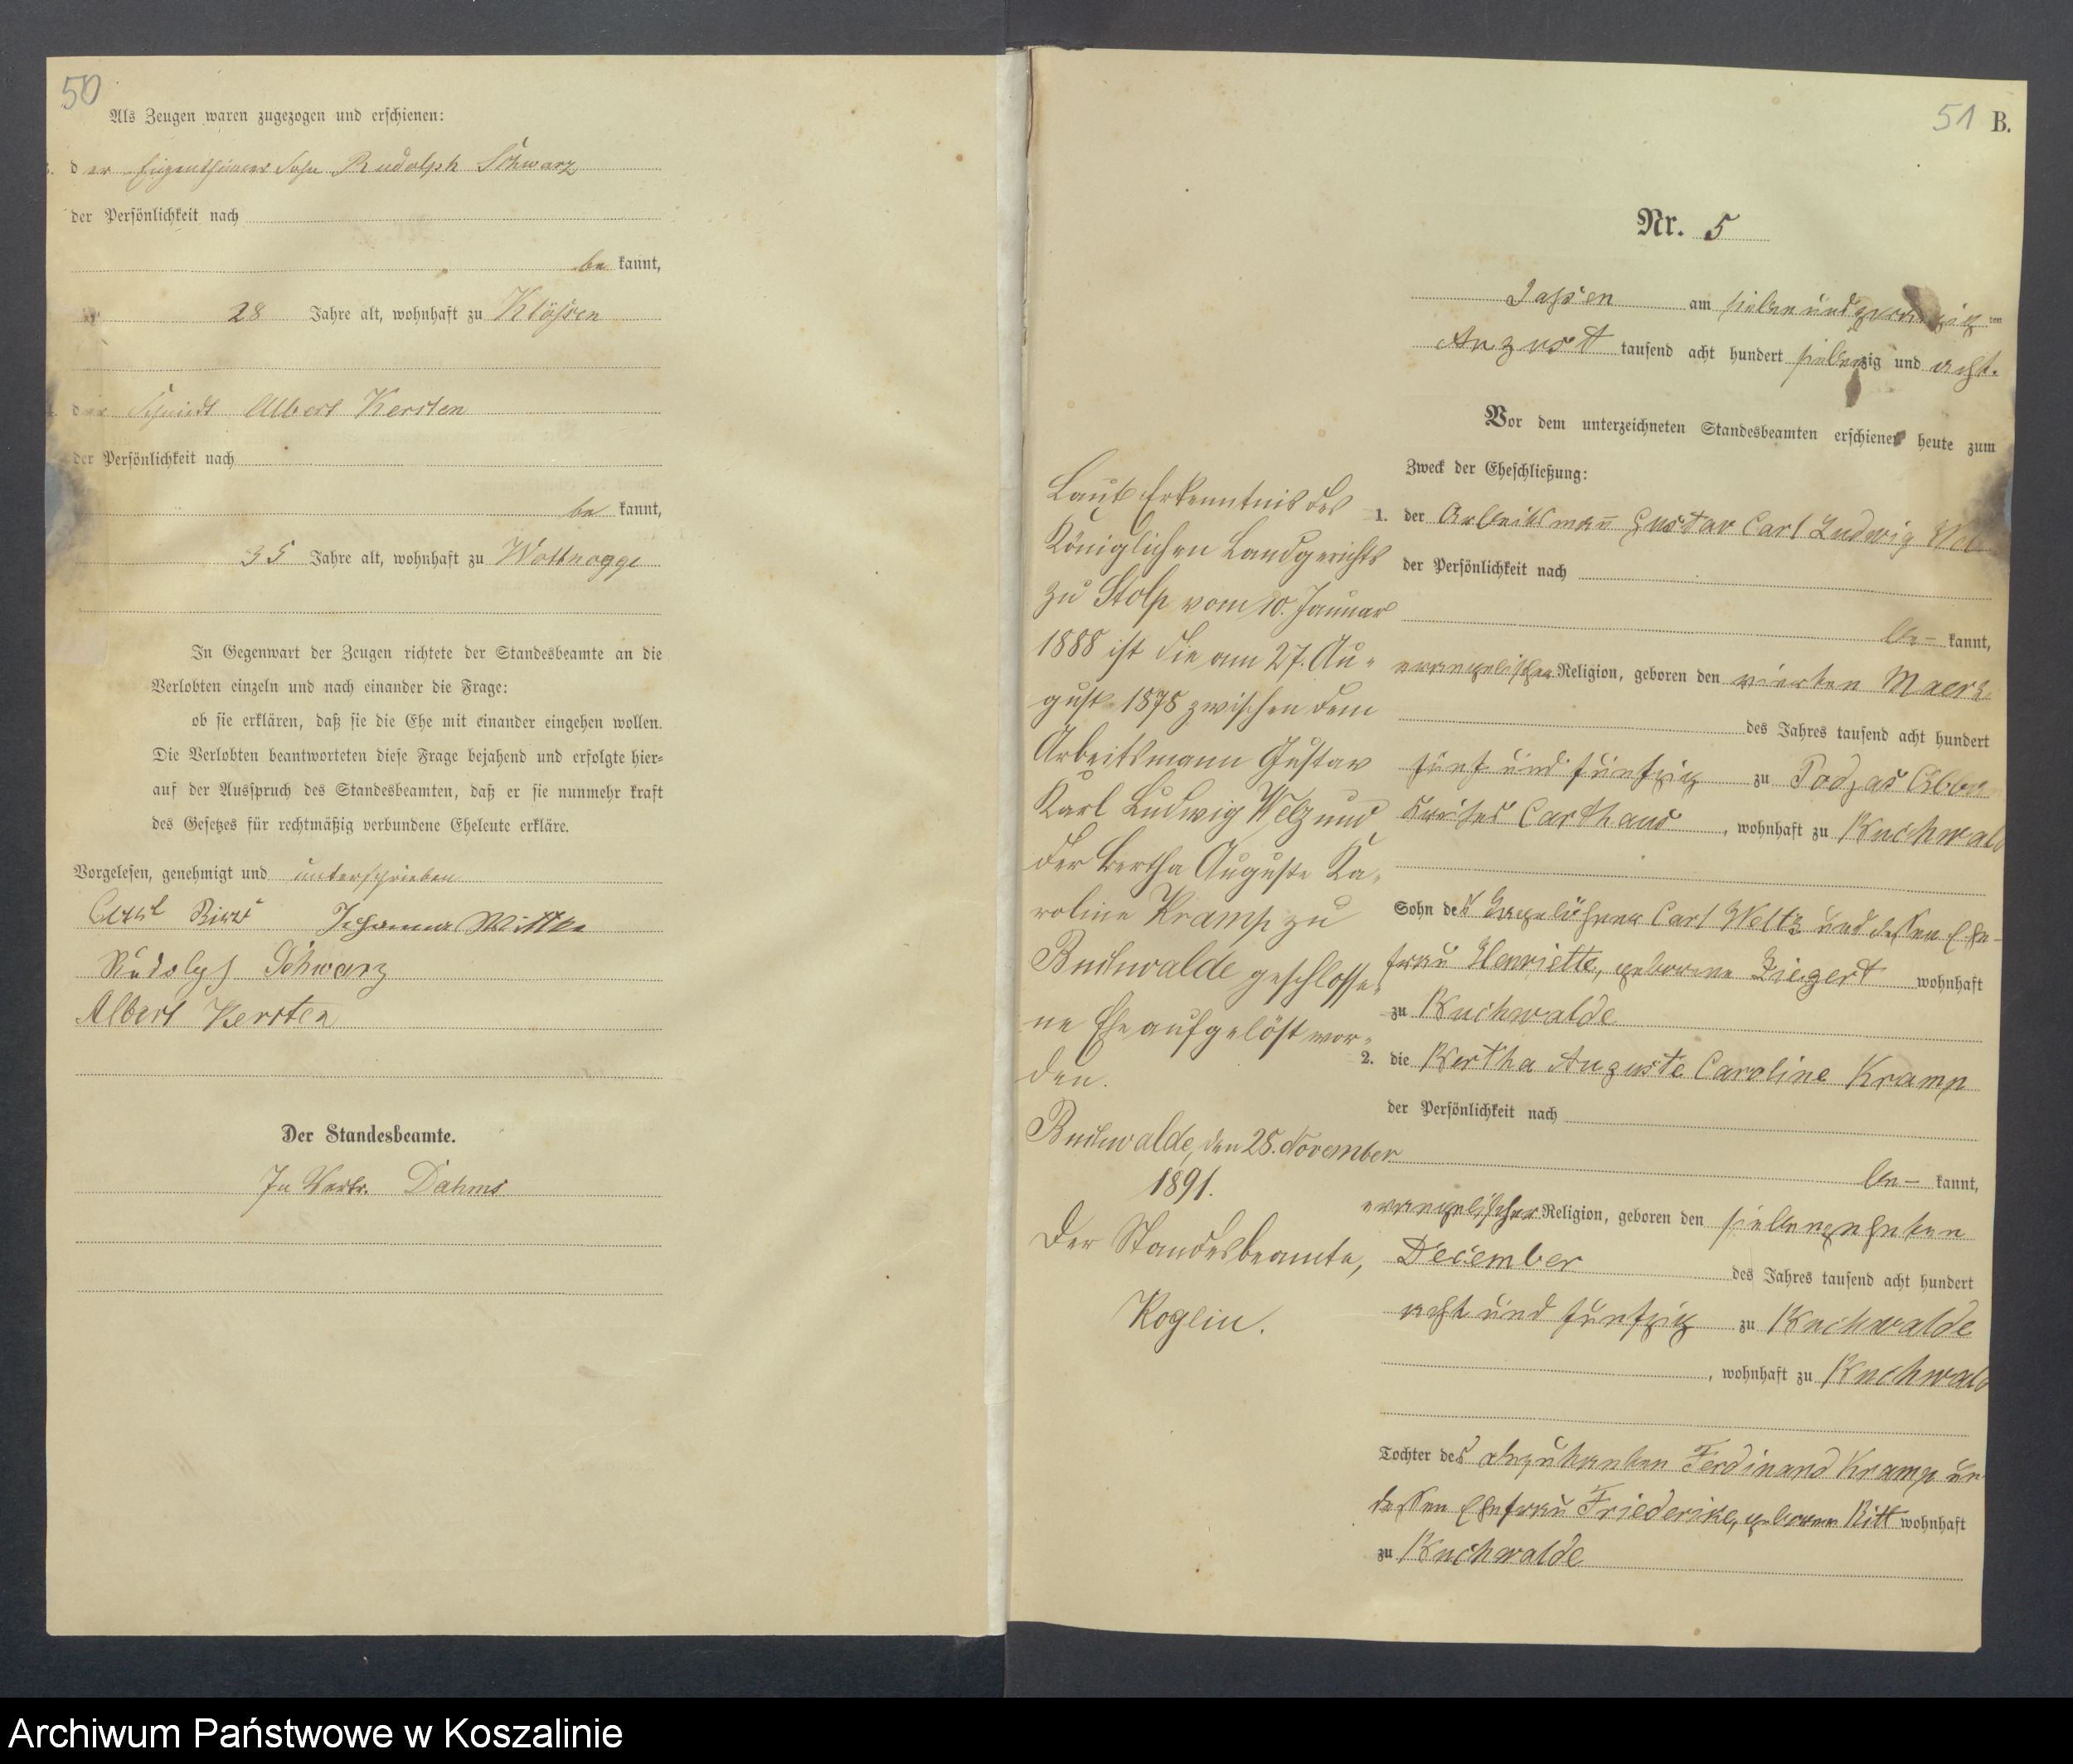 50
Als Zeugen waren zugezogen und erschienen:
der Eigenthümer Sohn Rudolph Schwarz
der Persönlichkeit nach
be kannt,
28 Jahre alt, wohnhaft zu Klössen
der Schmidt Albert Kersten
der Persönlichkeit nach
be kannt,
35 Jahre alt, wohnhaft zu Wottnogge
In Gegenwart der Zeugen richtete der Standesbeamte an die
Verlobten einzeln und nach einander die Frage:
ob sie erklären, daß sie die Ehe mit einander eingehen wollen.
Die Verlobten beantworteten diese Frage bejahend und erfolgte hier-
auf der Ausspruch des Standesbeamten, daß er sie nunmehr kraft
des Gesetzes für rechtmäßig verbundene Eheleute erkläre.
Vorgelesen, genehmigt und unterschrieben
Carl Johanna Wittke
Rudolph Schwarz
Albert Kersten
Der Standesbeamte.
In Vertr. Dahms
51 B.
Nr. 5
Jassen am sieben und zwanzigsten
August tausend acht hundert siebenzig und acht.
Vor dem unterzeichneten Standesbeamten erschienen heute zum
Zweck der Eheschließung:
1. der Arbeitsmann Gustav Carl Ludwig
der Persönlichkeit nach
be- kannt,
evangelischer Religion, geboren den vierten Maerz
des Jahres tausend acht hundert
fünf und fünfzig zu Podjas
Kreises Carthaus, wohnhaft zu Buchwald
Sohn des Tagelöhner Carl Weltz und dessen Ehe-
frau Henriette, geborene Ziegert wohnhaft
zu Buchwalde
2. die Bertha Auguste Caroline Kramp
der Persönlichkeit nach
be- kannt,
evangelischer Religion, geboren den siebenzehnten
December des Jahres tausend acht hundert
acht und fünfzig zu Buchwalde
, wohnhaft zu Buchwald
Tochter des Ferdinand Kramp un
dessen Ehefrau Friederike, geborene Ritt wohnhaft
zu Buchwalde
Laut Erkenntnis des
Königlichen Landgerichts
zu Stolp vom 10. Januar
1888 ist die am 27. Au-
gust 1878 zwischen dem
Arbeitsmann Gustav
Karl Ludwig Welz und
der Bertha Auguste Ka-
roline Kramp zu
Buchwalde geschlosse-
ne Ehe aufgelöst wor-
den.
Buchwalde, den 25. November
1891.
Der Standesbeamte,
Koglin.
Archiwum Państwowe w Koszalinie